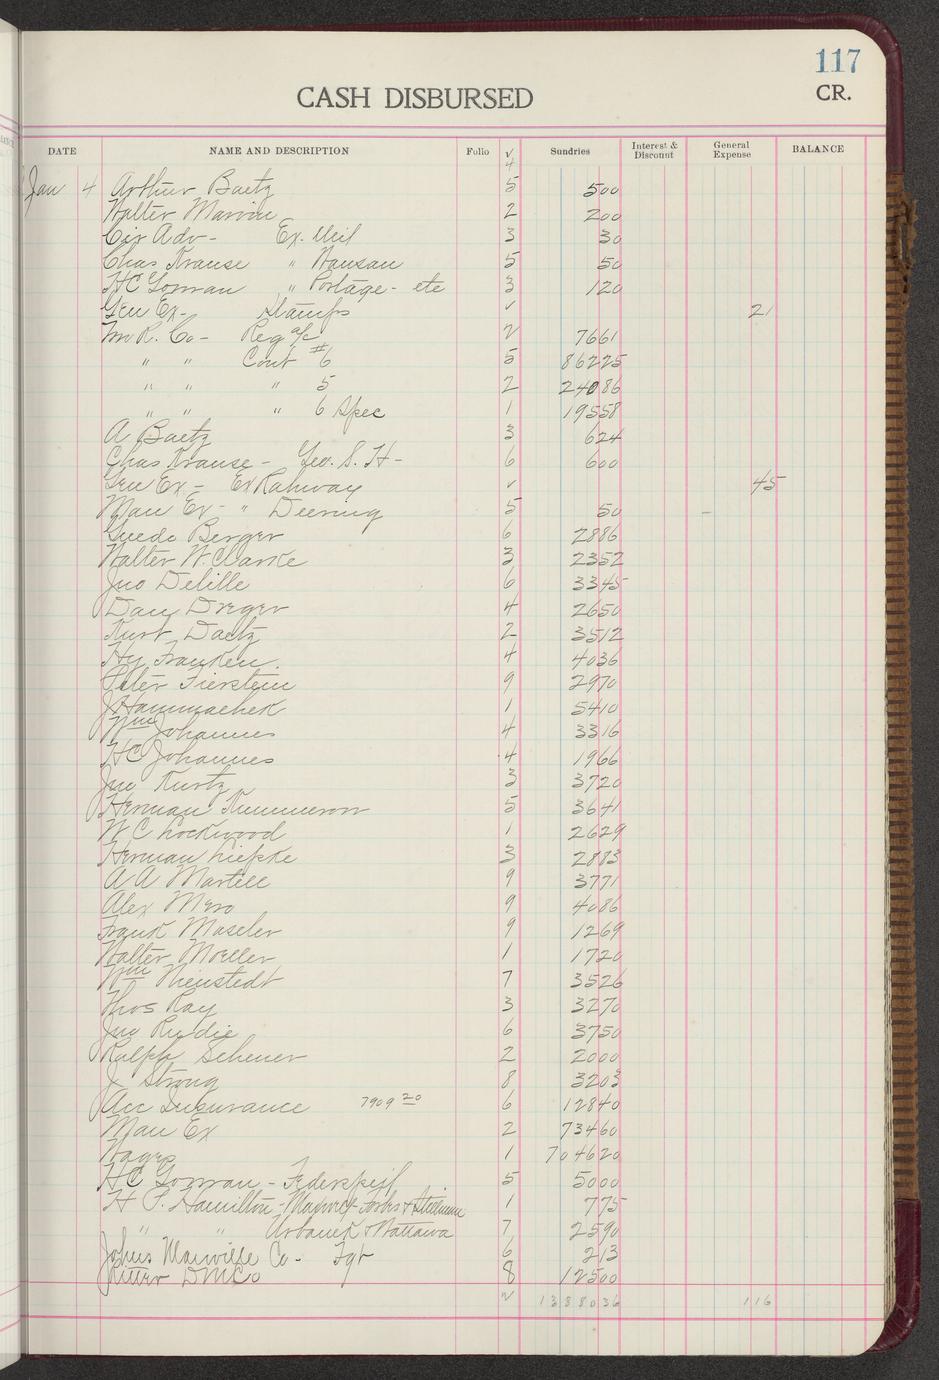 117
CASH DISBURSED
CR.
DATE NAME AND DESCRIPTION Folio √ Sundries Interest & Discount General Expense BALANCE
4
Jan 4 Arthur Baetz 5 500
Walter Marvin 2 200
Cir Adv - Ex. 3 30
Chas Krause " Wausau 5 50
HC Gorman " Postage - etc 3 120
Gen Ex - Stamps √ 21
R. Co - Reg a/c √ 7661
" " Cont #6 5 86225
" " " 5 2 24086
" " " 6 Spec 1 19558
A Baetz 3 624
Chas Krause - Geo. S. H - 6 600
Gen Ex - Ex Rahway √ 45
Man Ex - " Deering 5 50
Guedo Berger 6 2886
Walter W. Clarke 3 2352
Jno Delille 6 3345
Dan Dreger 4 2650
Kurt Daetz 2 3512
Hy Franken. 4 4036
Peter Fierstein 9 2970
J Hammachek 1 5410
Wm Johannes 4 3316
HC Johannes 4 1966
Jno Kurtz 3 3720
Herman Kummerow 5 3641
W C Lockwood 1 2629
Herman Liefke 3 2883
A A Martell 9 3771
Alex Mero 9 4086
Frank Maseler 9 1269
Walter Moeller 1 1720
Wm Nienstedt 7 3526
Thos Ray 3 3270
Jno Rudie 6 3750
Ralph Scheuer 2 2000
J Strong 8 3203
Acc Insurance 7909 20 6 12840
Man Ex 2 73460
Wages 1 704620
HC Gorman - Federspiel 5 5000
H P. Hamilton - 1 775
" " Urbanek & Wattawa 7 2590
Johns Manville Co - Fgt 6 213
Ritter D M Co 8 12500
√ 1388036 116